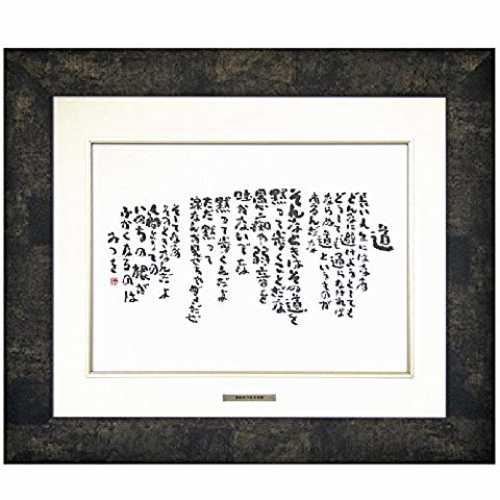 道
長い人生にはなあ
どんなに避けようとしても
どうしても通らなければ
ならぬ道というものが
あるんだな
そんなときはその道を
黙って歩くことだな
愚痴や弱音を
吐かないでな
黙って歩くんだよ
ただ黙って
涙なんか見せちゃダメだぜ
そしてなあ
その時なんだよ
人間としての
いのちの根が
ふかくなるのは
みつを